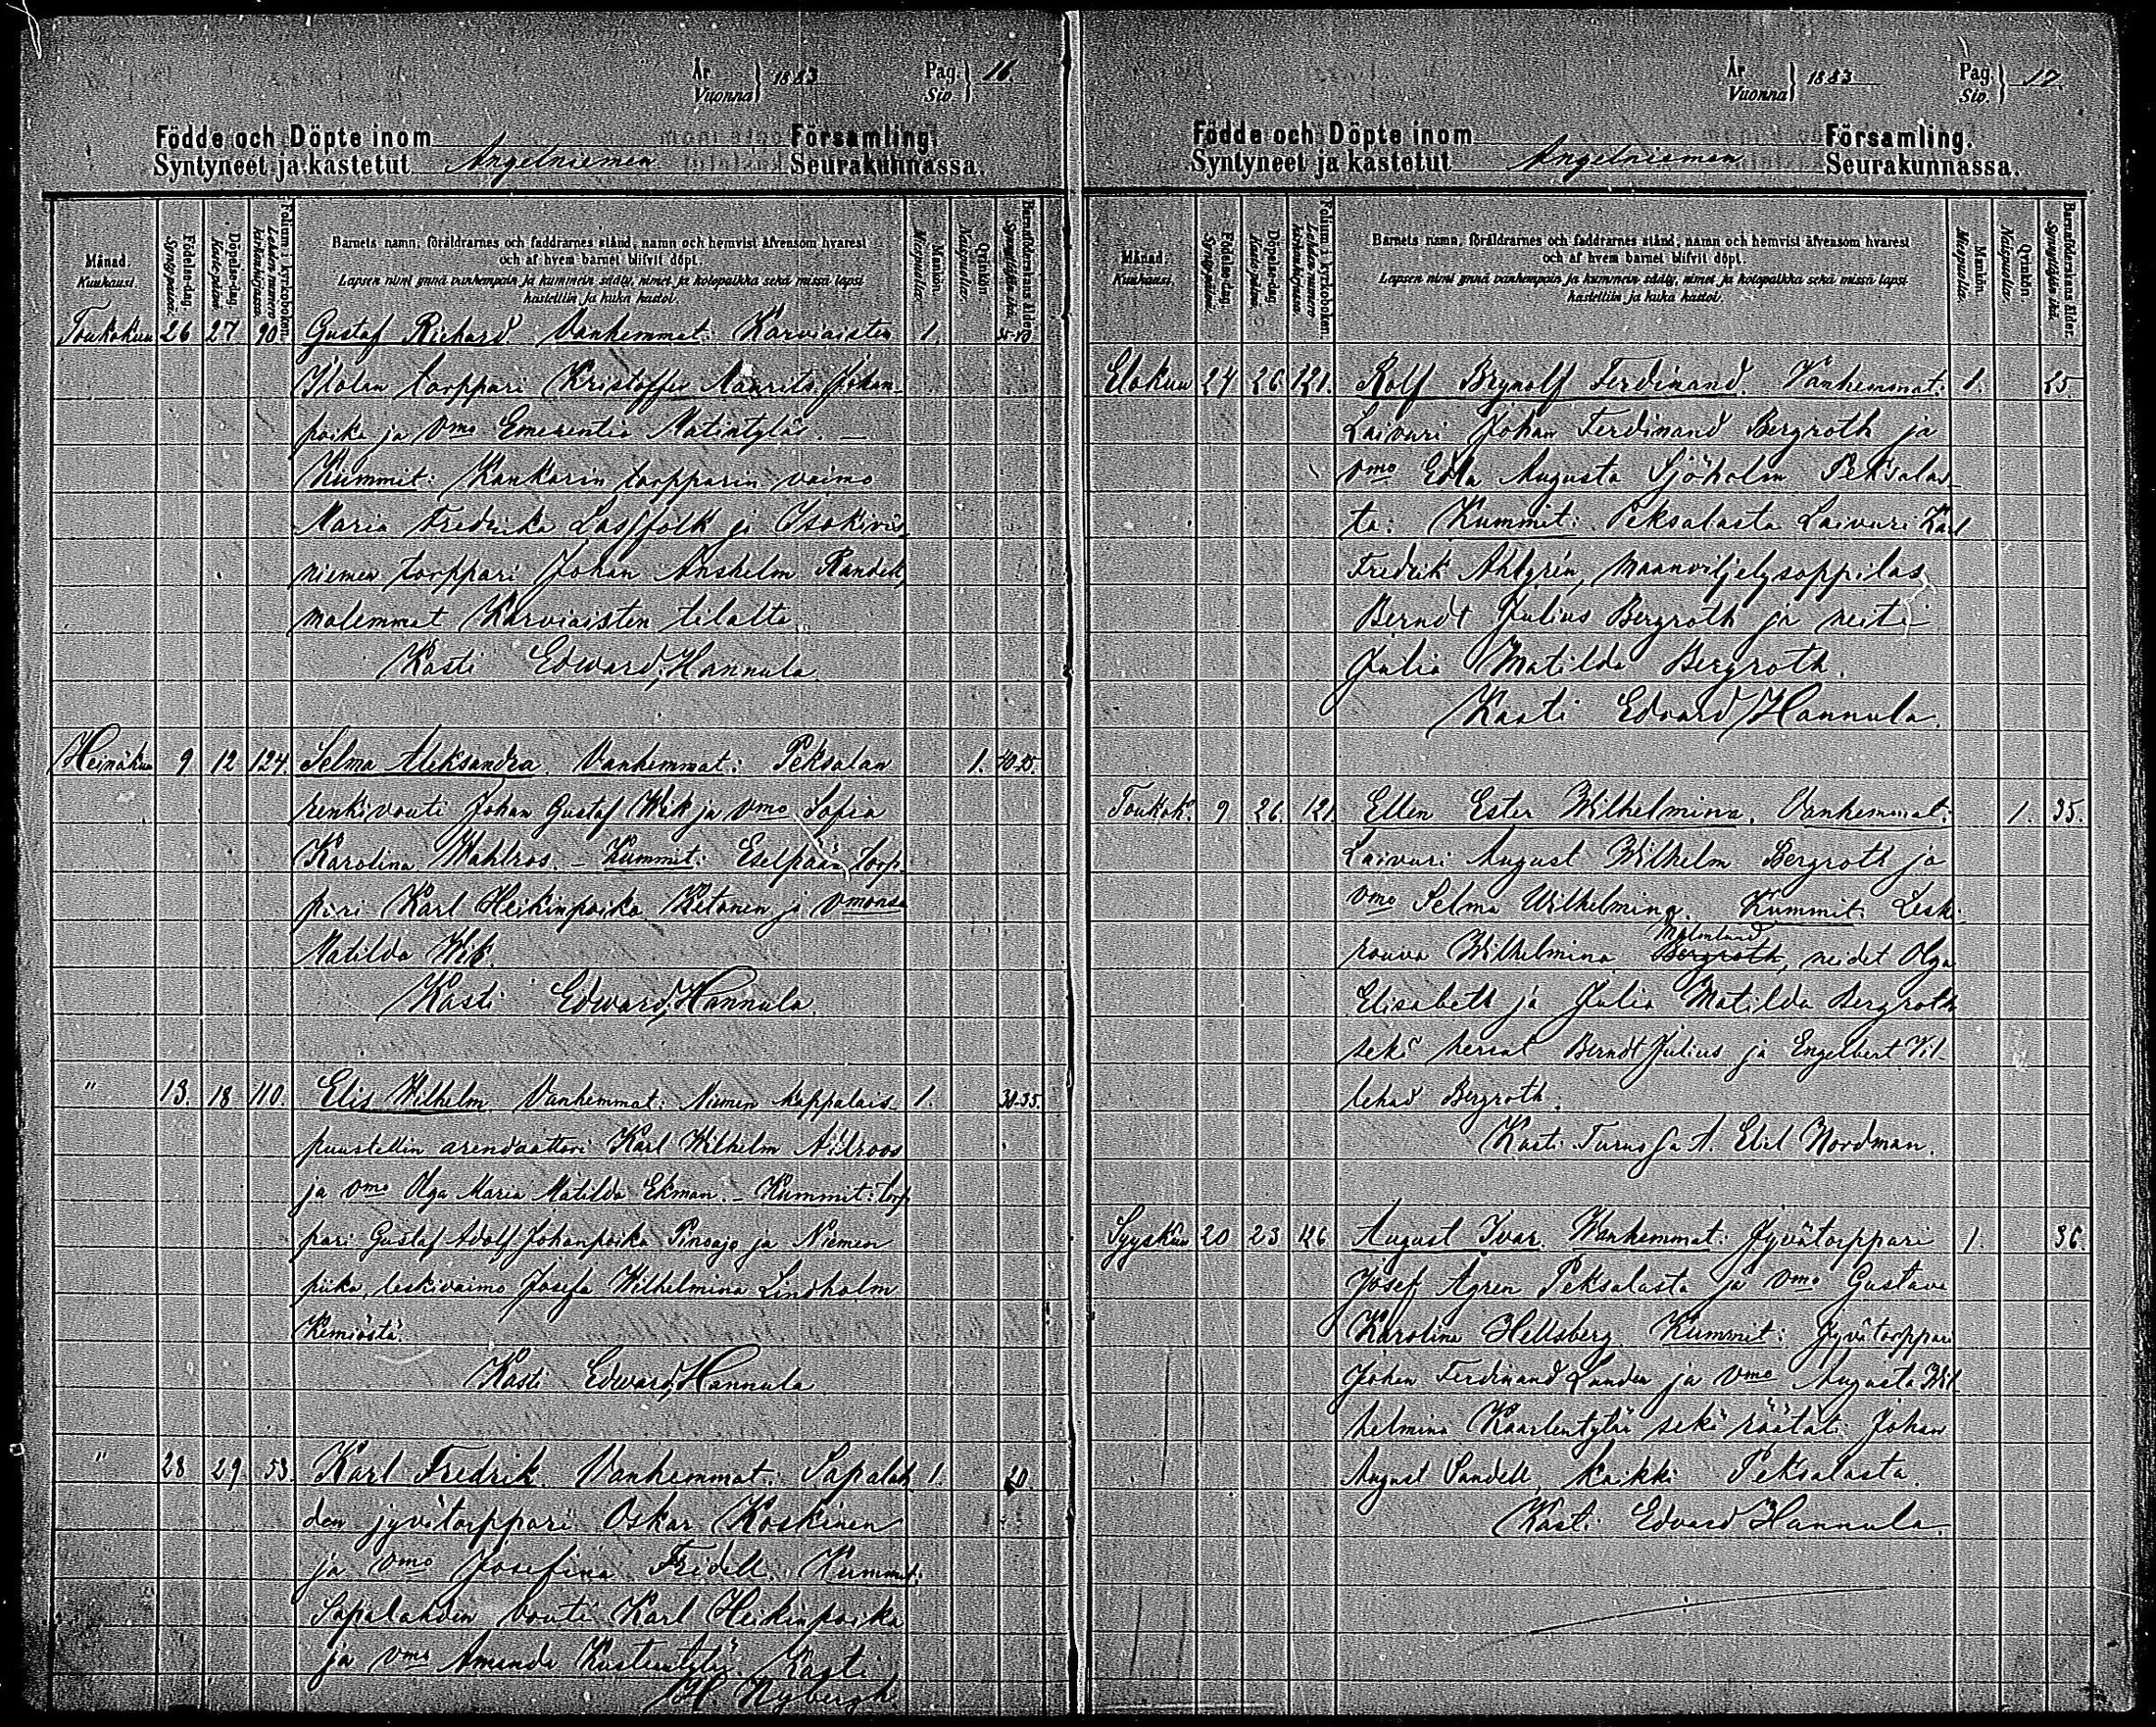 År
Vuonna } 1883 Pag.
Siv. } 16.
Födde och Döpte inom Församling.
Syntyneet ja kastetut Angelniemen Seurakunnassa.
Månad.
Kuukausi.
Födelse-dag.
Syntypäivä.
Döpelse-dag.
Kaste-päivä.
Folium i kyrkoboken.
Lehden numero kirkonkirjassa.
Barnets namn, föräldrarnes och faddrarnes stånd, namn och hemvist äfvensom hvarest
och af hvem barnet blifvit döpt.
Lapsen nimi ynnä vanhempain ja kummein sääty, nimet ja kotopaikka sekä missä lapsi
kastettiin ja kuka kastoi.
Mankön.
Miespuolia.
Qvinkön.
Naispuolia.
Barnaföderskans ålder.
Synnyttäjän ikä.
Toukokuu 26 27 90 Gustaf Richard. Vanhemmat: Karviaisten 1.
torppari Kristoffer Maurits Johan-
poika ja vmo Emerentia Matintytär. —
Kummit: Kankarin torpparin vaimo
Maria Fredrika Lassfolk ja Isokivis-
niemen torppari Johan Anshelm Randell,
molemmat Karviaisten tilalta.
Kasti Edward Hannula.
Heinäkuu 9 12 124. Selma Aleksandra. Vanhemmat: Peksalan 1.
renkivouti Johan Gustaf Wik ja vmo Sofia
Karolina Wahlros. — Kummit: Eselpään torp-
pari Karl Heikinpoika Ketonen ja vmonsa
Matilda Wik.
Kasti Edward Hannula.
" 13. 18 110. Elis Wilhelm Vanhemmat: Niemen kappalais- 1. 30-35.
puustellin arendaattori Karl Wilhelm
ja vmo Olga Maria Matilda Ekman. — Kummit: torp-
pari Gustaf Adolf Johanpoika ja Niemen
piika, leskivaimo Josefa Wilhelmina Lindholm
Kemiöstä.
Kasti Edward Hannula
" 28 29 53. Karl Fredrik. Vanhemmat: Sapalah- 1. 20.
den jyvätorppari Oskar Koskinen
ja vmo Josefina Fridell. Kummit:
Sapalahden vouti Karl Heikinpoika
ja vmo Amanda Kustaantytär. Kasti
Nybergh
År
Vuonna } 1883 Pag.
Siv. } 17.
Födde och Döpte inom Församling.
Syntyneet ja kastetut Angelniemen Seurakunnassa.
Månad.
Kuukausi.
Födelse-dag.
Syntypäivä.
Döpelse-dag.
Kaste-päivä.
Folium i kyrkoboken.
Lehden numero kirkonkirjassa.
Barnets namn, föräldrarnes och faddrarnes stånd, namn och hemvist äfvensom hvarest
och af hvem barnet blifvit döpt.
Lapsen nimi ynnä vanhempain ja kummein sääty, nimet ja kotopaikka sekä missä lapsi
kastettiin ja kuka kastoi.
Mankön.
Miespuolia.
Qvinkön.
Naispuolia.
Barnaföderskans ålder.
Synnyttäjän ikä.
Elokuu 24 26 121. Rolf Brynolf Ferdinand. Vanhemmat: 1. 25.
Laivuri Johan Ferdinand Bergroth ja
vmo Edla Augusta Sjöholm Peksalas-
ta: Kummit: Peksalasta Laivuri Karl
Fredrik Ahlgrén, maanviljelysoppilas
Berndt Julius Bergroth ja neiti
Julia Matilda Bergroth.
Kasti Edvard Hannula.
Toukok. 9 26. 121. Ellen Ester Wilhelmina. Vanhemmat: 1. 35.
Laivuri August Wilhelm Bergroth ja
vmo Selma Wilhelmina. Kummit: Leski-
Malmlund
rouva Wilhelmina Bergroth, neidet Olga
Elisabeth ja Julia Matilda Bergroth
sekä herrat Berndt Julius ja Engelbert Vil-
lehad Bergroth.
Kasti Turussa A. Ebel Nordman.
Syyskuu 20 23 126 August Ivar. Wanhemmat: Jyvätorppari 1. 36.
Josef Ågren Peksalasta ja vmo Gustava
Karolina Hellsberg. Kummit: Jyvätorppari
Johan Ferdinand Lunden ja vmo Augusta Wil-
helmina Kaarlentytär sekä räätäli Johan
August Sandell, kaikki Peksalasta.
Kasti Edvard Hannula.